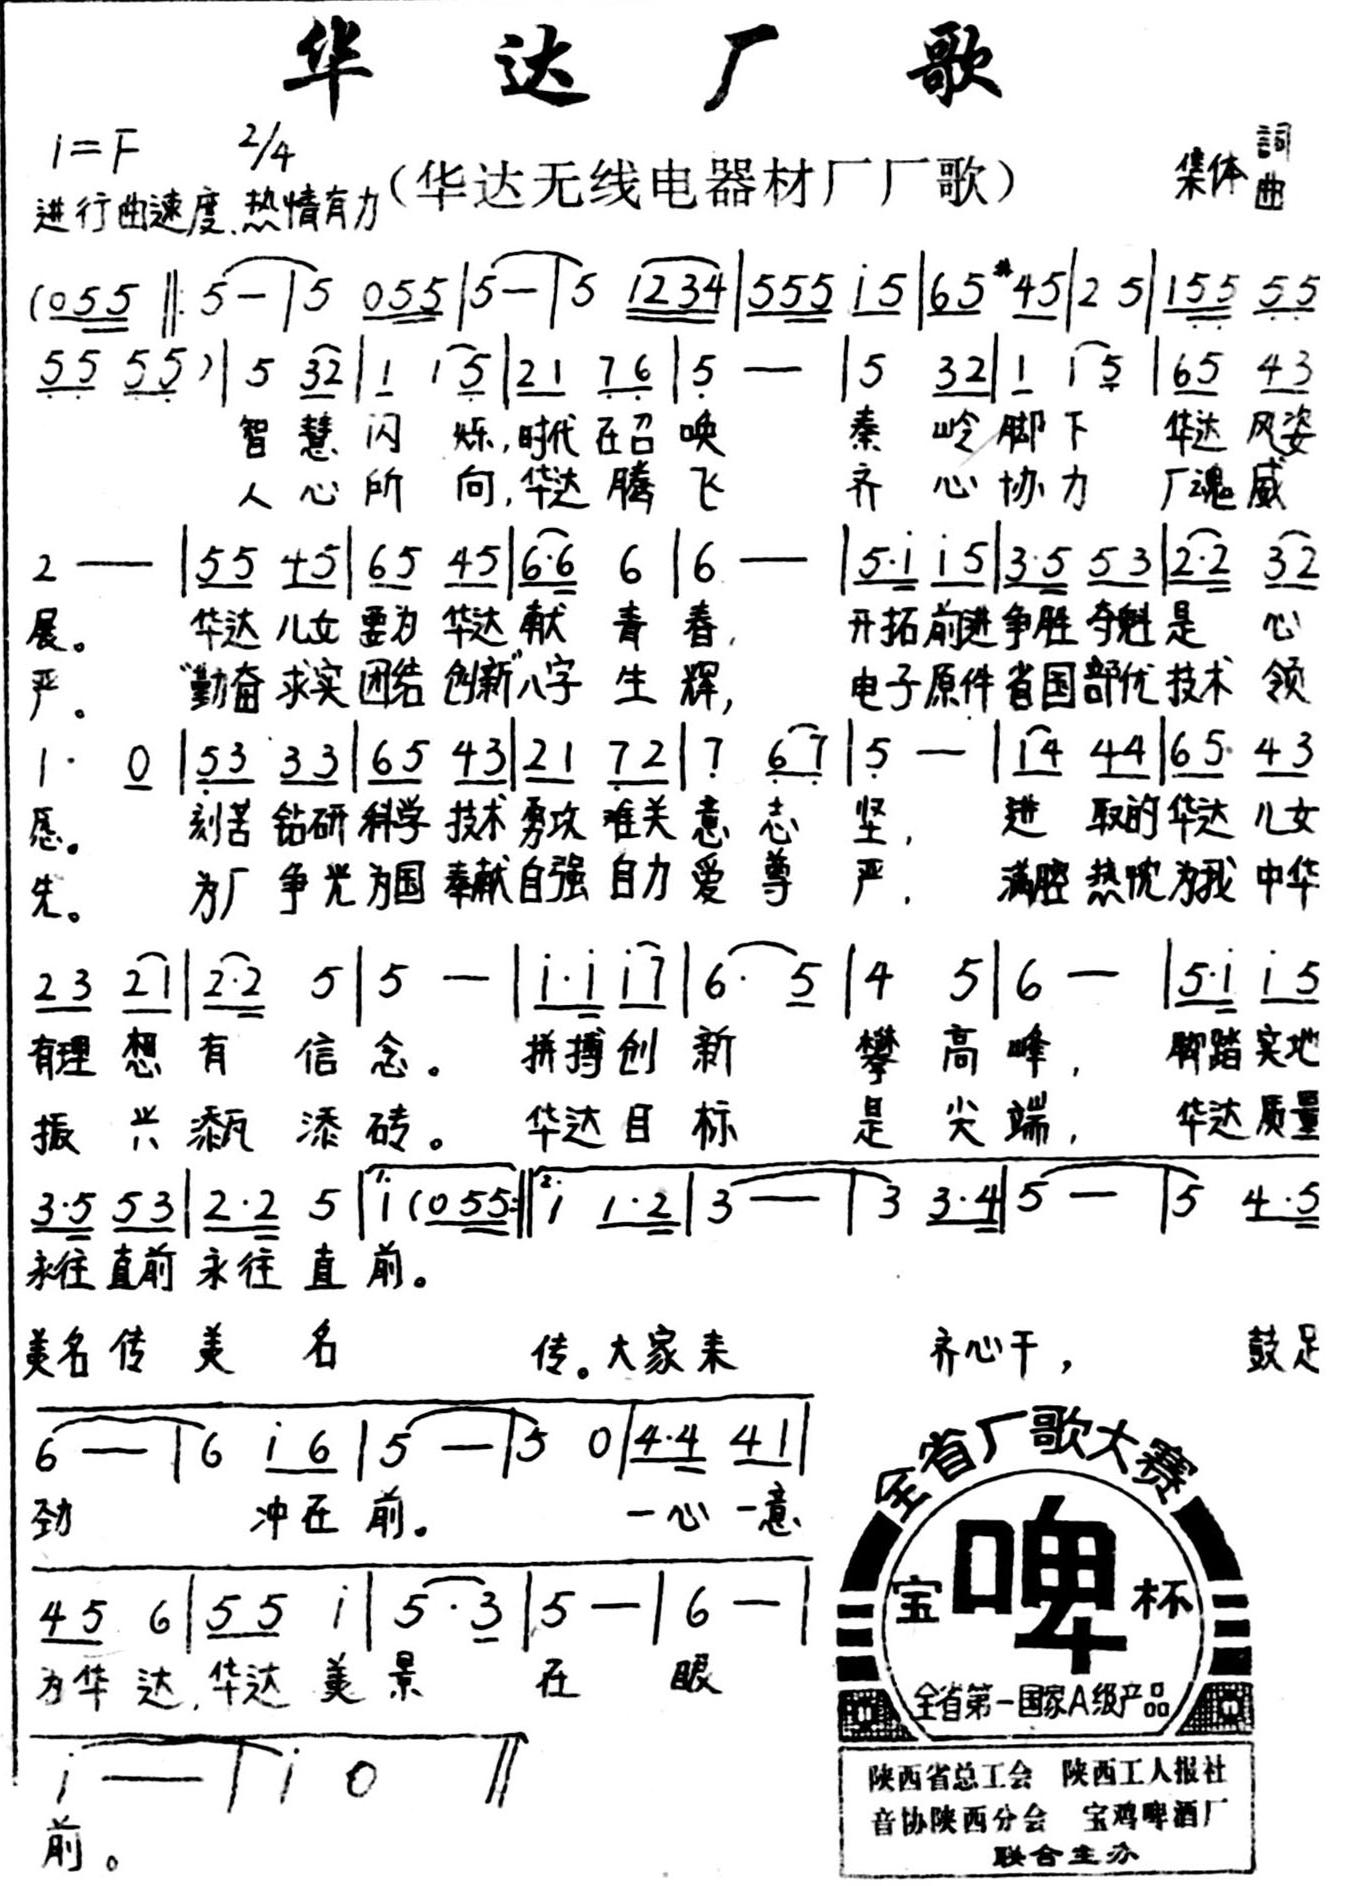 华达厂歌
1=F 2/4
(华达无线电器材厂厂歌)
集体 詞曲
进行曲速度、热情有力
(055 ‖: 5 — | 5 055 | 5 — | 5 1234 | 555 i5 | 65 #45 | 2 5 | 155 55
55 55) | 5 32 | 1 1 5 | 21 76 | 5 — | 5 32 | 1 i 5 | 65 43
智慧闪烁,时代在召唤 秦岭脚下 华达风姿
人心所向,华达腾飞 齐心协力 厂魂威
2 — | 55 45 | 65 45 | 6·6 6 | 6 — | 5·i i5 | 3·5 53 | 2·2 32
展。 华达儿女要为华达献青春, 开拓前进争胜夺魁是心
严。 “勤奋求实团结创新”八字生辉, 电子原件省国部优技术领
1· 0 | 53 33 | 65 43 | 21 72 | 7 67 | 5 — | 14 44 | 65 43
愿。 刻苦钻研科学技术勇攻难关意志坚, 进取的华达儿女
先。 为厂争光为国奉献自强自力爱尊严, 满腔热忱为我中华
23 21 | 2·2 5 | 5 — | i·i i7 | 6· 5 | 4 5 | 6 — | 5·i i5
有理想有信念。 拼搏创新 攀高峰, 脚踏实地
振兴添瓦添砖。 华达目标 是尖端, 华达质量
3·5 53 | 2·2 5 | 1. i (055 :‖ 2. i 1·2 | 3 — | 3 3·4 | 5 — | 5 4·5
永往直前永往直前。
美名传美名 传。大家来 齐心干, 鼓足
6 — | 6 i6 | 5 — | 5 0 | 4·4 41 |
劲 冲在前。 一心一意
45 6 | 55 i | 5·3 | 5 — | 6 — |
为华达,华达美景在眼
i — | i 0 ‖
前。
全省厂歌大赛
宝啤杯
全省第一国家A级产品
陕西省总工会 陕西工人报社
音协陕西分会 宝鸡啤酒厂
联合主办